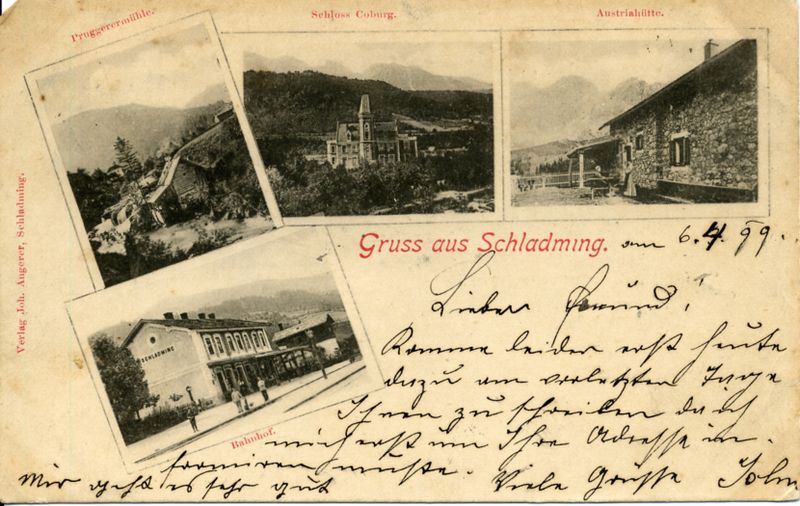 Pruggerermühle.
Schloss Coburg.
Austriahütte.
Verlag Joh. Angerer, Schladming.
SCHLADMING
Bahnhof.
Gruss aus Schladming. am 6.4.99.
Lieber Freund!
Komme leider erst heute
dazu am vorletzten Tage
Ihnen zu schreiben da ich
mich erst um Ihre Adresse in-
formiren musste. Viele Grüsse
Mir geht es sehr gut